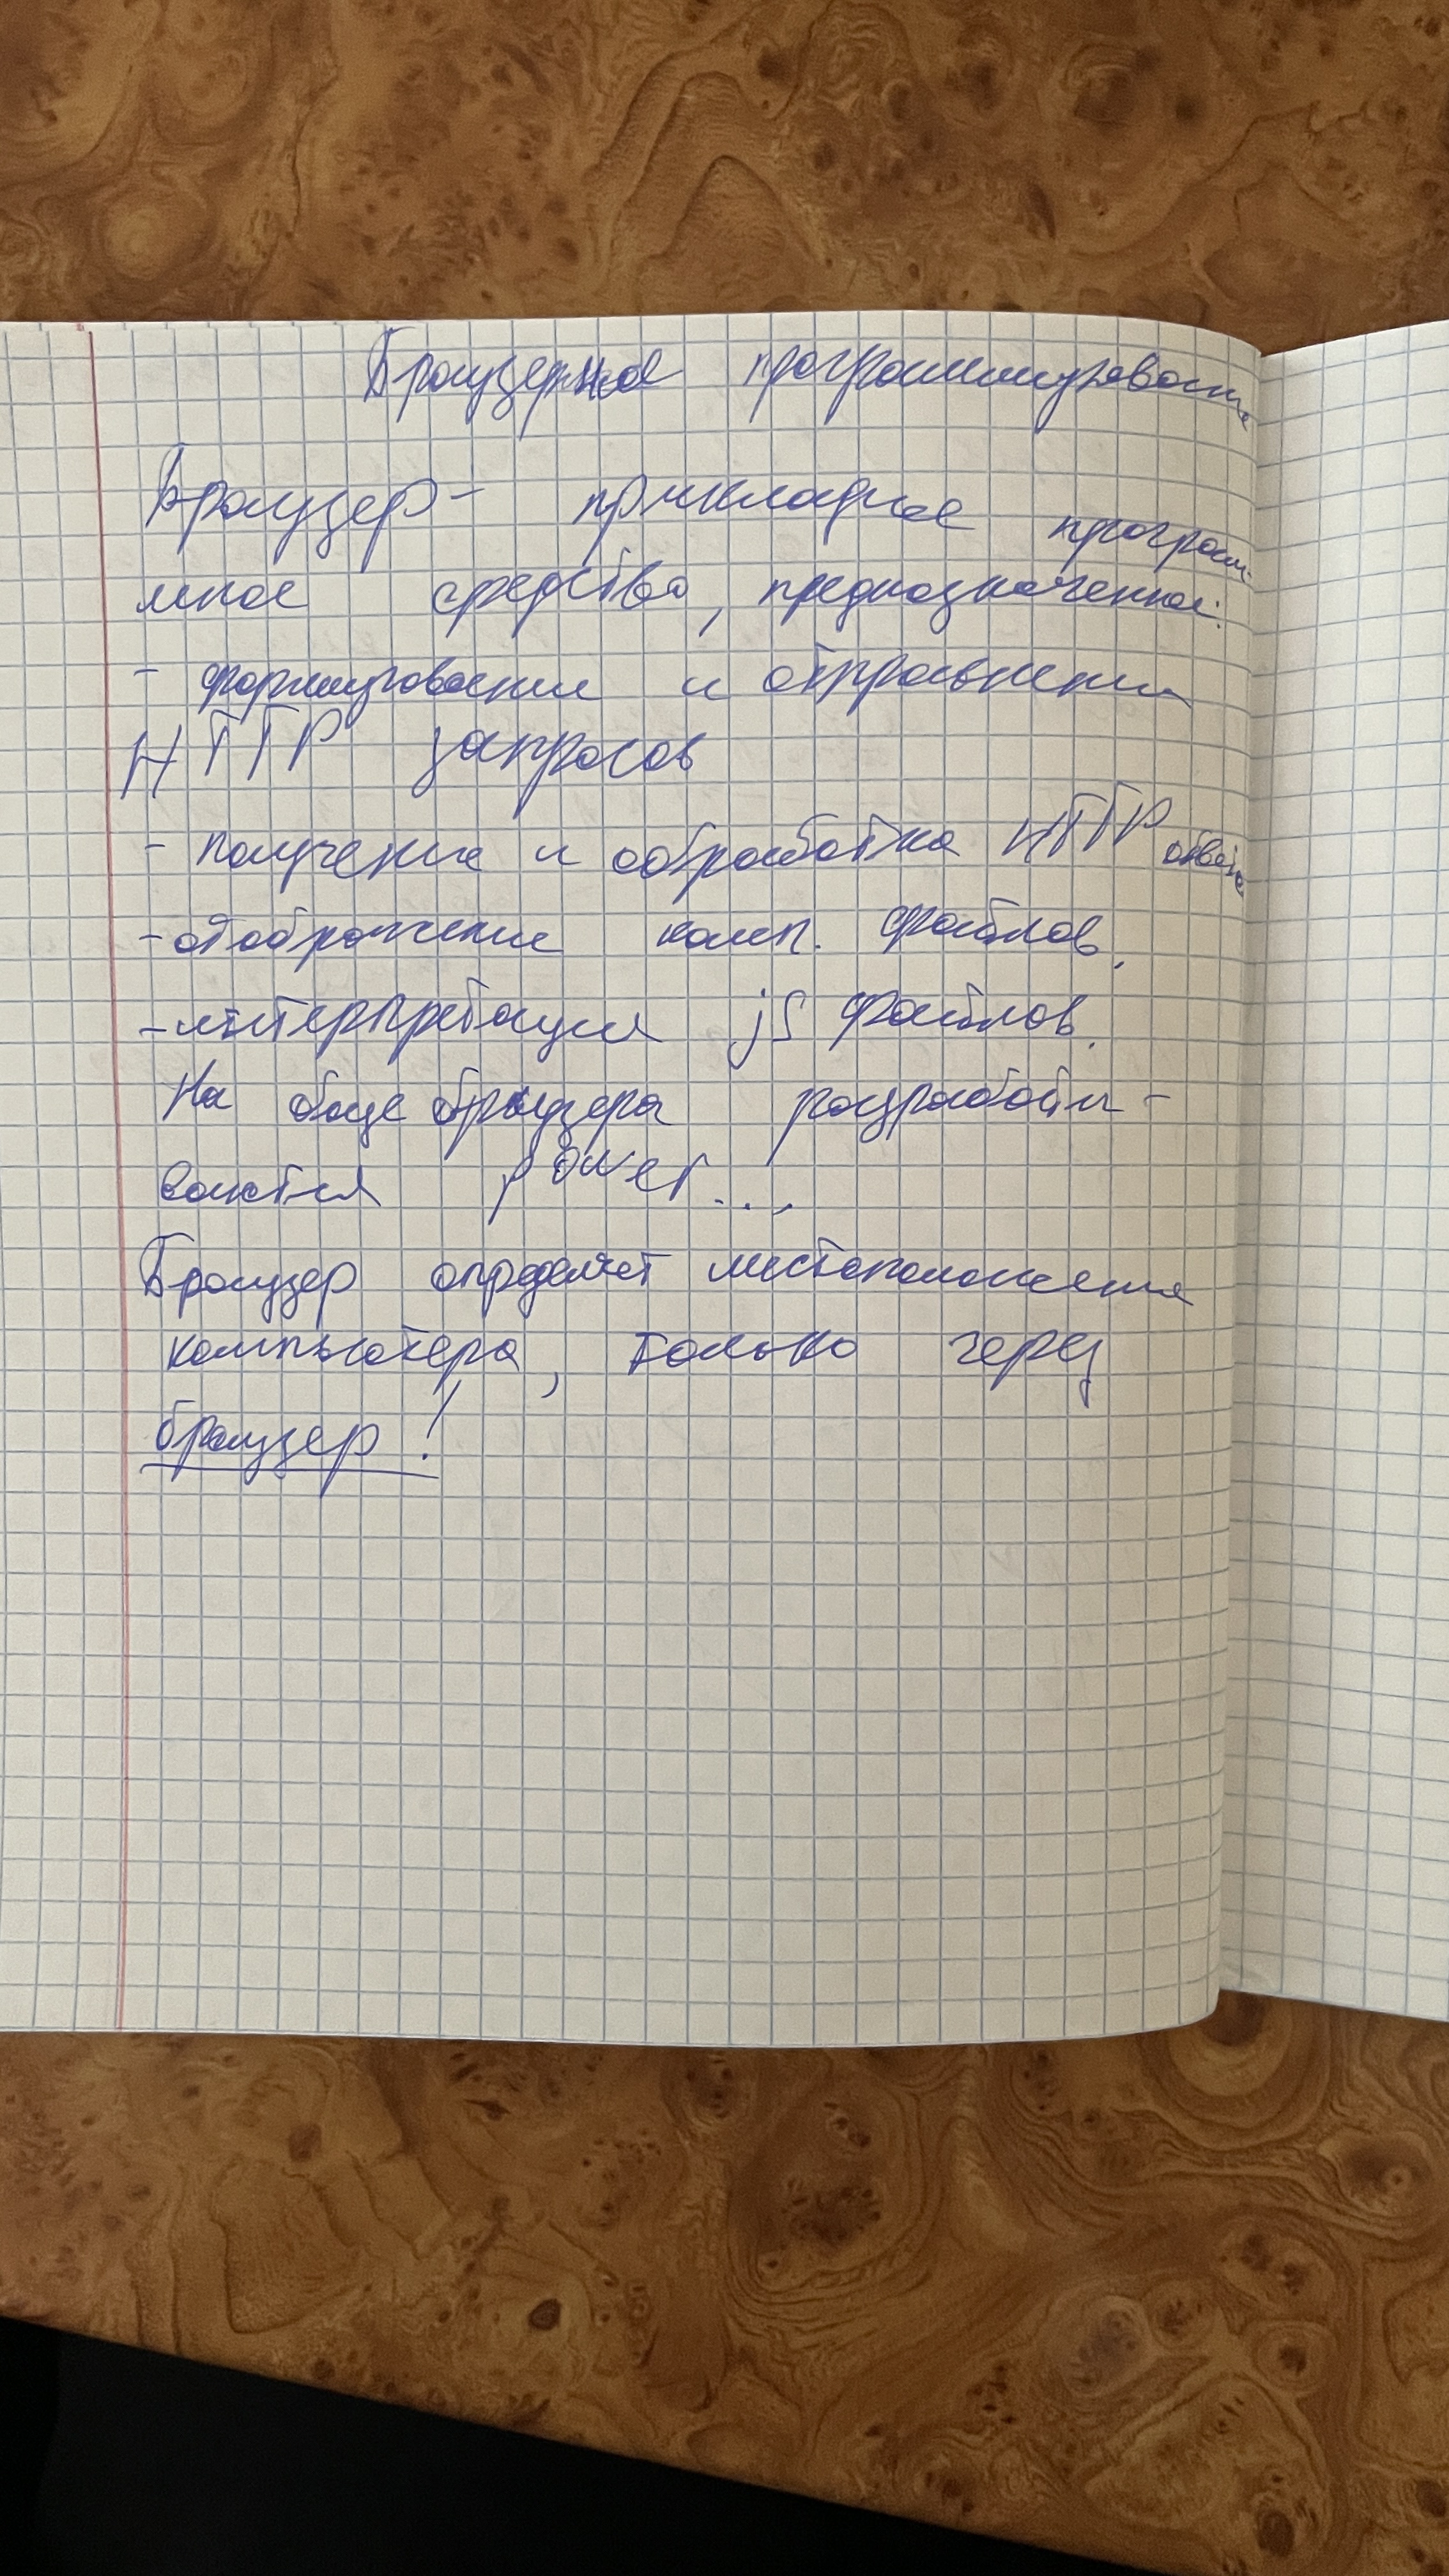 Браузерное программирование
Браузер - прикладное програм-
мное средство, предназначенное:
- формирования и отправления
HTTP запросов
- получение и обработка HTTP ответов
- отображение комп. файлов,
- интерпретация js файлов.
На базе браузера разрабаты-
ваются power...,
Браузер определяет местоположение
компьютера, только через
браузер!